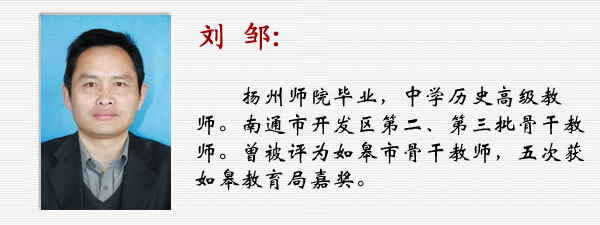 刘 邹:
扬州师院毕业，中学历史高级教
师。南通市开发区第二、第三批骨干教
师。曾被评为如皋市骨干教师，五次获
如皋教育局嘉奖。